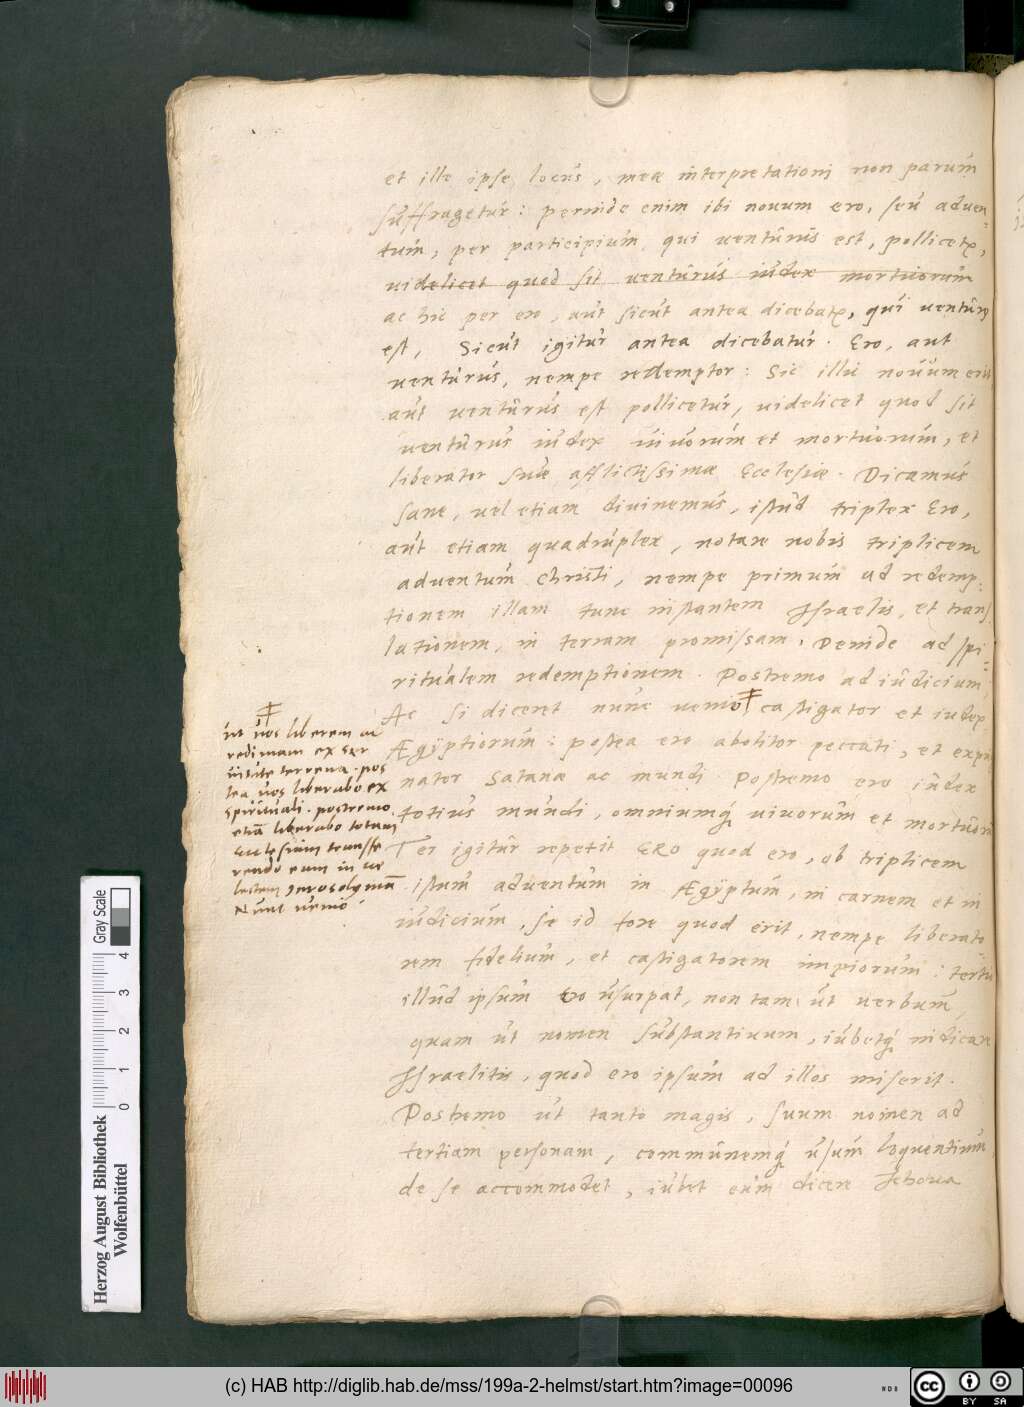 et ille ipse locus, meæ interpretationi non parum
suffragetur: perinde enim ibi nouum ero, seu aduen-
tum, per participium qui uenturus est, pollicetr,
uidelicet quod sit uenturus iudex mortuorum
ac hic per ero, aut sicut antea dicebatr, qui uenturus
est, Sicut igitur antea dicebatur. Ero, aut
uenturus, nempe redemptor: Sic illic nouum ero
aut uenturus est pollicetur, uidelicet quod sit
uenturus iudex uiuorum et mortuorum, et
liberator suæ afflictissimæ Ecclesiæ. Dicamus
sane, uel etiam diuinemus, istud triplex Ero,
aut etiam quadruplex, notare nobis triplicem
aduentum Christi, nempe primum ad redemp-
tionem illam tunc instantem Israelis, et trans
lationem, in terram promissam. Deinde ad spi-
ritualem redemptionem. Postremo ad iudicium
Ac si diceret nunc uenio castigator et iudex
Ægÿptiorum: postea ero abolitor peccati, et expu
nator Satanæ ac mundi. Postremo ero iudex
totius mundi, omniumq́ uiuorum et mortuoru
Ter igitur repetit ERO quod ero, ob triplicem
istum aduentum in Ægÿptum, in carnem et in
iudicium, se id fore quod erit, nempe liberato
rem fidelium, et castigatorem impiorum: tertio
illud ipsum Ero usurpat, non tam ut uerbum,
quam ut nomen substantiuum, iubetq́ indicare
Israelitis, quod ero ipsum ad illos miserit.
Postremo ut tanto magis, suum nomen ad
tertiam personam, communemq́ usum loquentium
de se accommodet, iubet eum dicere Jehoua
ut uos liberem ac
redimam ex ser
uitute terrena. pos
tea uos liberabo ex
spirituali. postremo
etiã liberabo totam
Ecclesiam transfe
rendo eam in cæ
lestem Jerosolymã
Nunc uenio
Herzog August Bibliothek
Wolfenbüttel
0 1 2 3 4
Gray Scale
(c) HAB http://diglib.hab.de/mss/199a-2-helmst/start.htm?image=00096
cc BY SA